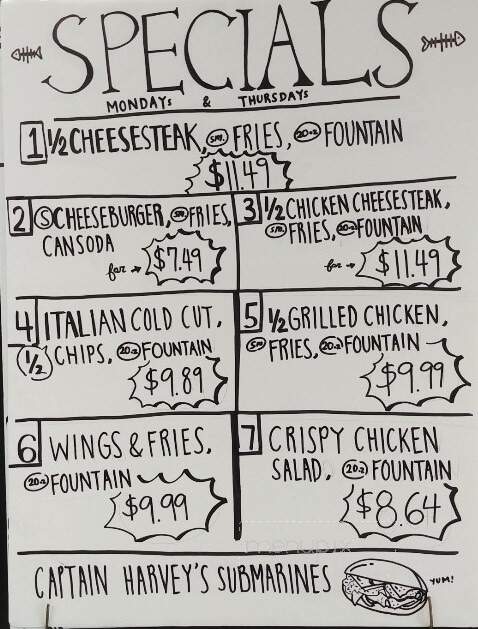 SPECIALS
MONDAYS & THURSDAYS
1 1/2 CHEESESTEAK, sm. FRIES, 20oz FOUNTAIN
$11.49
2 S CHEESEBURGER, sm FRIES,
CAN SODA
for → $7.49
3 1/2 CHICKEN CHEESESTEAK,
sm. FRIES, 20oz FOUNTAIN
for → $11.49
4 ITALIAN COLD CUT,
1/2 CHIPS, 20oz FOUNTAIN
$9.89
5 1/2 GRILLED CHICKEN,
sm FRIES, 20oz FOUNTAIN
$9.99
6 WINGS & FRIES,
20oz FOUNTAIN
$9.99
7 CRISPY CHICKEN
SALAD, 20oz FOUNTAIN
$8.64
CAPTAIN HARVEY'S SUBMARINES
YUM!